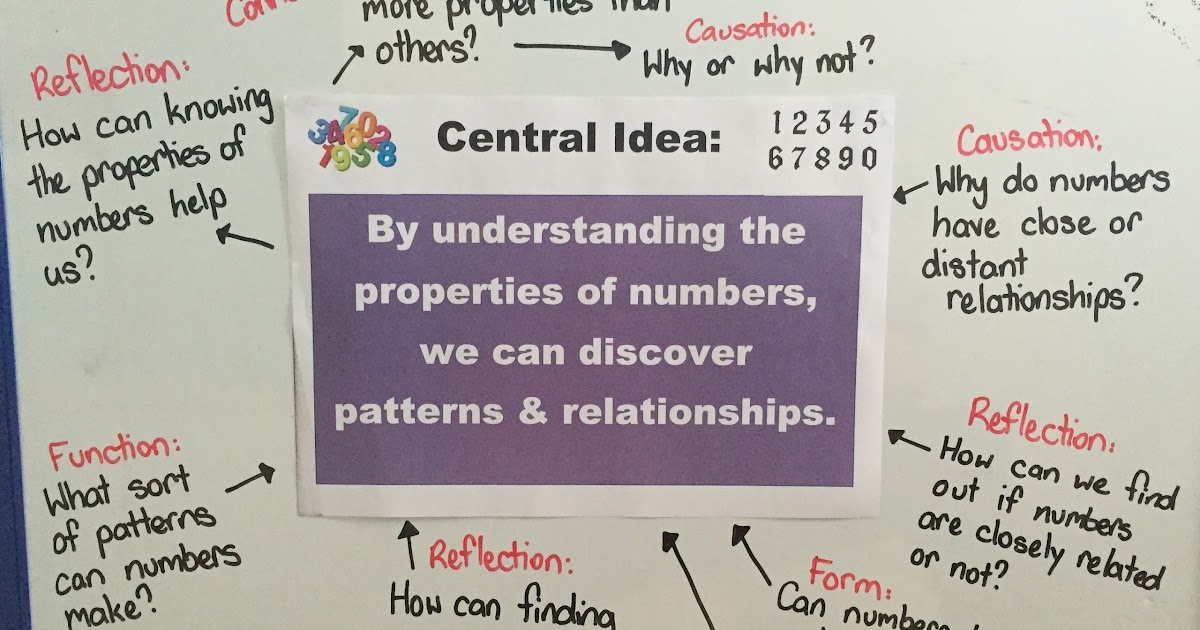 more properties than
others?
Causation:
Why or why not?
Reflection:
How can knowing
the properties of
numbers help
us?
Central Idea:
1 2 3 4 5
6 7 8 9 0
By understanding the
properties of numbers,
we can discover
patterns & relationships.
Causation:
Why do numbers
have close or
distant
relationships?
Function:
What sort
of patterns
can numbers
make?
Reflection:
How can finding
Form:
Can numbers
Reflection:
How can we find
out if numbers
are closely related
or not?